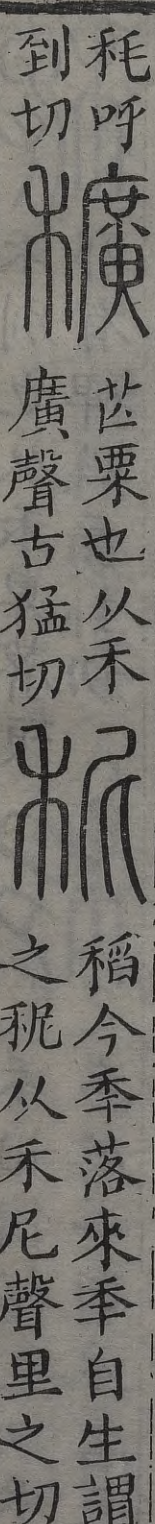 秏呼
到切
穬
芒粟也从禾
廣聲古猛切
秜
稻今秊落來秊自生謂
之秜从禾尼聲里之切